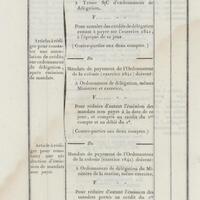 à Trésor S/C d'ordonnances de
délégation.
F
Pour annuler des crédits de délégation
restant à payer sur l'exercice 1841,
à l'époque de ce jour.
(Contre-parties aux deux comptes.)
Du
Articles à rédi-
ger pour consta-
ter une annu-
lation de crédits
par ordonnance de
délégation
après émission
de mandats.
Mandats de payement de l'Ordonnateur
de la colonie (exercice 1841) doivent:
à Ordonnances de délégation, même
Ministère et exercice,
F
Pour réduire d'autant l'émission des
mandats non payés à la date de ce
jour, et compris au crédit du 1er
compte et au débit du 2e.
(Contre-parties aux deux comptes.)
Du
Articles à rédi-
ger pour cons-
tater une ré-
duction d'émis-
sion de mandats
non payés.
Mandats de payement de l'Ordonnateur
de la colonie (exercice 1841) doivent:
à Ordonnances de délégation du Mi-
nistère de la marine, même exercice,
F
Pour réduire d'autant l'émission des
mandats portés au crédit du 1er